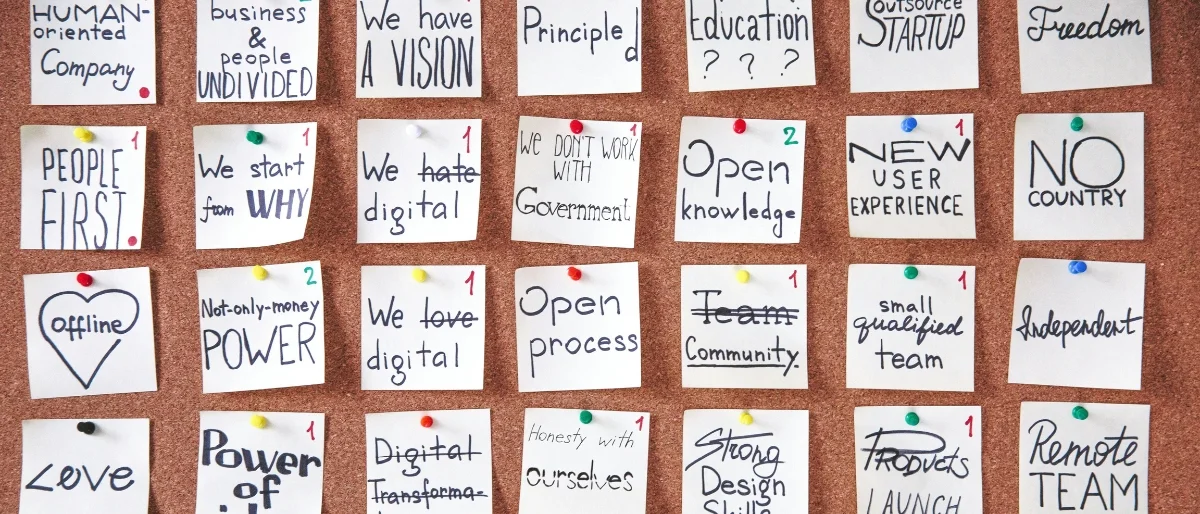 HUMAN-
oriented
Company
business
&
people
UNDIVIDED
We have
A VISION
Principled
Education
? ? ?
Outsource
STARTUP
Freedom
1
PEOPLE
FIRST.
1
We start
from WHY
1
We hate
digital
1
We DON'T WORK
WITH
Government
2
Open
knowledge
1
NEW
USER
EXPERIENCE
NO
COUNTRY
offline
2
Not-only-money
POWER
1
We love
digital
Open
process
1
Team
Community.
1
small
qualified
team
Independent
Love
1
Power
of
Digital
Transforma-
1
Honesty with
ourselves
Strong
Design
Skills
1
PRODUCTS
LAUNCH
Remote
TEAM